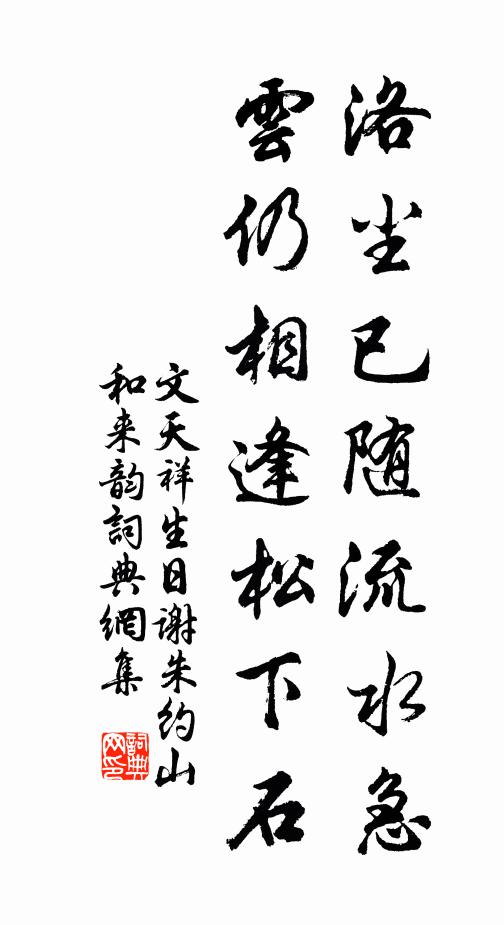 洛尘已随流水急
雲仍相逢松下石
文天祥生日谢朱约山
和来韵詞典網集
詞典网印